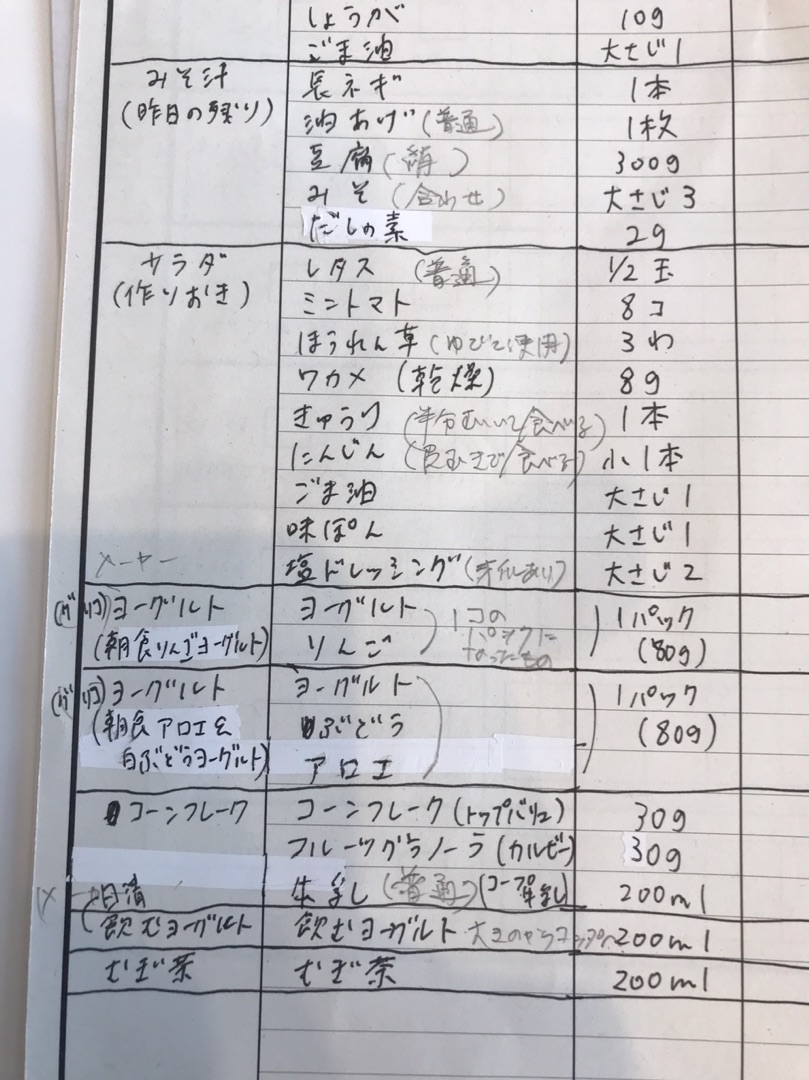 しょうが 10g
ごま油 大さじ1
みそ汁 長ネギ 1本
(昨日の残り) 油あげ(普通) 1枚
豆腐(絹) 300g
みそ(合わせ) 大さじ3
だしの素 2g
サラダ レタス (普通) 1/2玉
(作りおき) ミントマト 8コ
ほうれん草(ゆでて使用) 3わ
ワカメ (乾燥) 8g
きゅうり (半分むいて/食べる) 1本
にんじん (皮むきで/食べる) 小1本
ごま油 大さじ1
味ぽん 大さじ1
メーヤー 塩ドレッシング(オイルあり) 大さじ2
(グリコ)ヨーグルト ヨーグルト 1コの 1パック
(朝食りんごヨーグルト) りんご パックに (80g)
なったもの
(グリコ)ヨーグルト ヨーグルト 1パック
(朝食アロエ& ぶどう (80g)
白ぶどうヨーグルト) アロエ
コーンフレーク コーンフレーク(トップバリュ) 30g
フルーツグラノーラ(カルビー) 30g
日清 牛乳(普通)(コープ牛乳) 200ml
(飲むヨーグルト 飲むヨーグルト 200ml
むぎ茶 むぎ茶 200ml